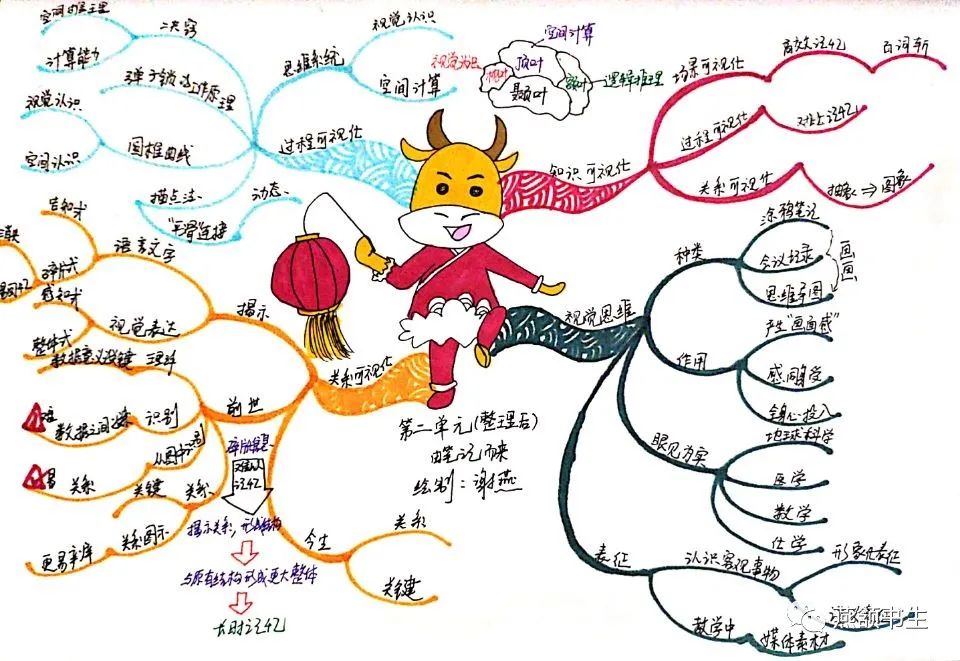 空间推理
计算能力
决窍
弹子锁工作原理
视觉认识
空间认识
圆锥曲线
描点法
动态
"平滑"连接
思维系统
视觉认识
空间计算
过程可视化
空间计算
视觉认识
枕叶
顶叶
额叶
颞叶
逻辑推理
知识可视化
场景可视化
高效记忆
百词斩
过程可视化
对比记忆
关系可视化
抽象⇒图象
视觉思维
种类
涂鸦笔记
会议记录
思维导图
画
画
作用
产生"画面感"
感同身受
全身心投入
眼见为实
地球科学
医学
数学
化学
表征
认识客观事物
形象化表征
教学中
媒体素材
关系可视化
揭示
语言文字
告知式
碎片式
视觉表达
感知式
整体式
前世
识别
数据之间
关系
从图中识别
关系
关键
关系图示
更易牢库
今生
关系
关键
碎片信息
难以记忆
揭示关系,形成结构
与原有结构形成更大整体
长时记忆
第二单元(整理后)
由笔记而来
绘制:谢燕
燕额书生